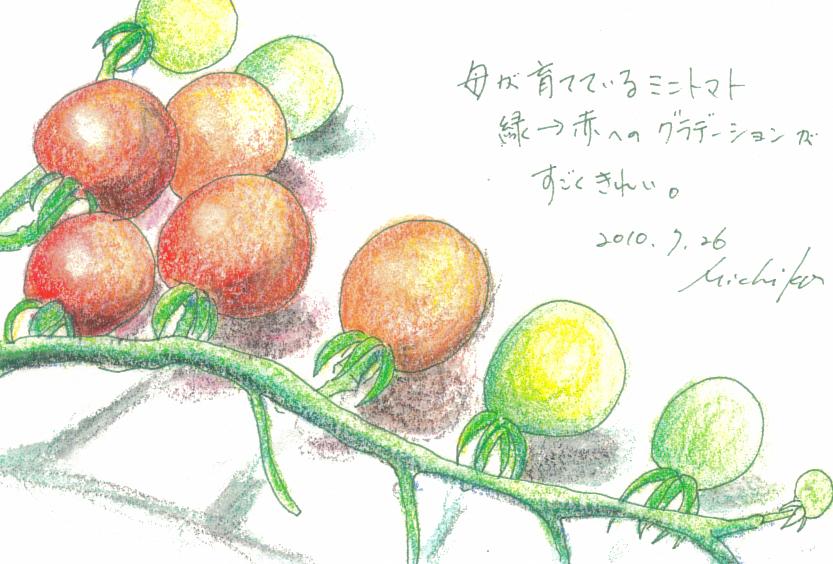 母が育てているミニトマト
緑→赤へのグラデーションが
すごくきれい。
2010.7.26
Michiko